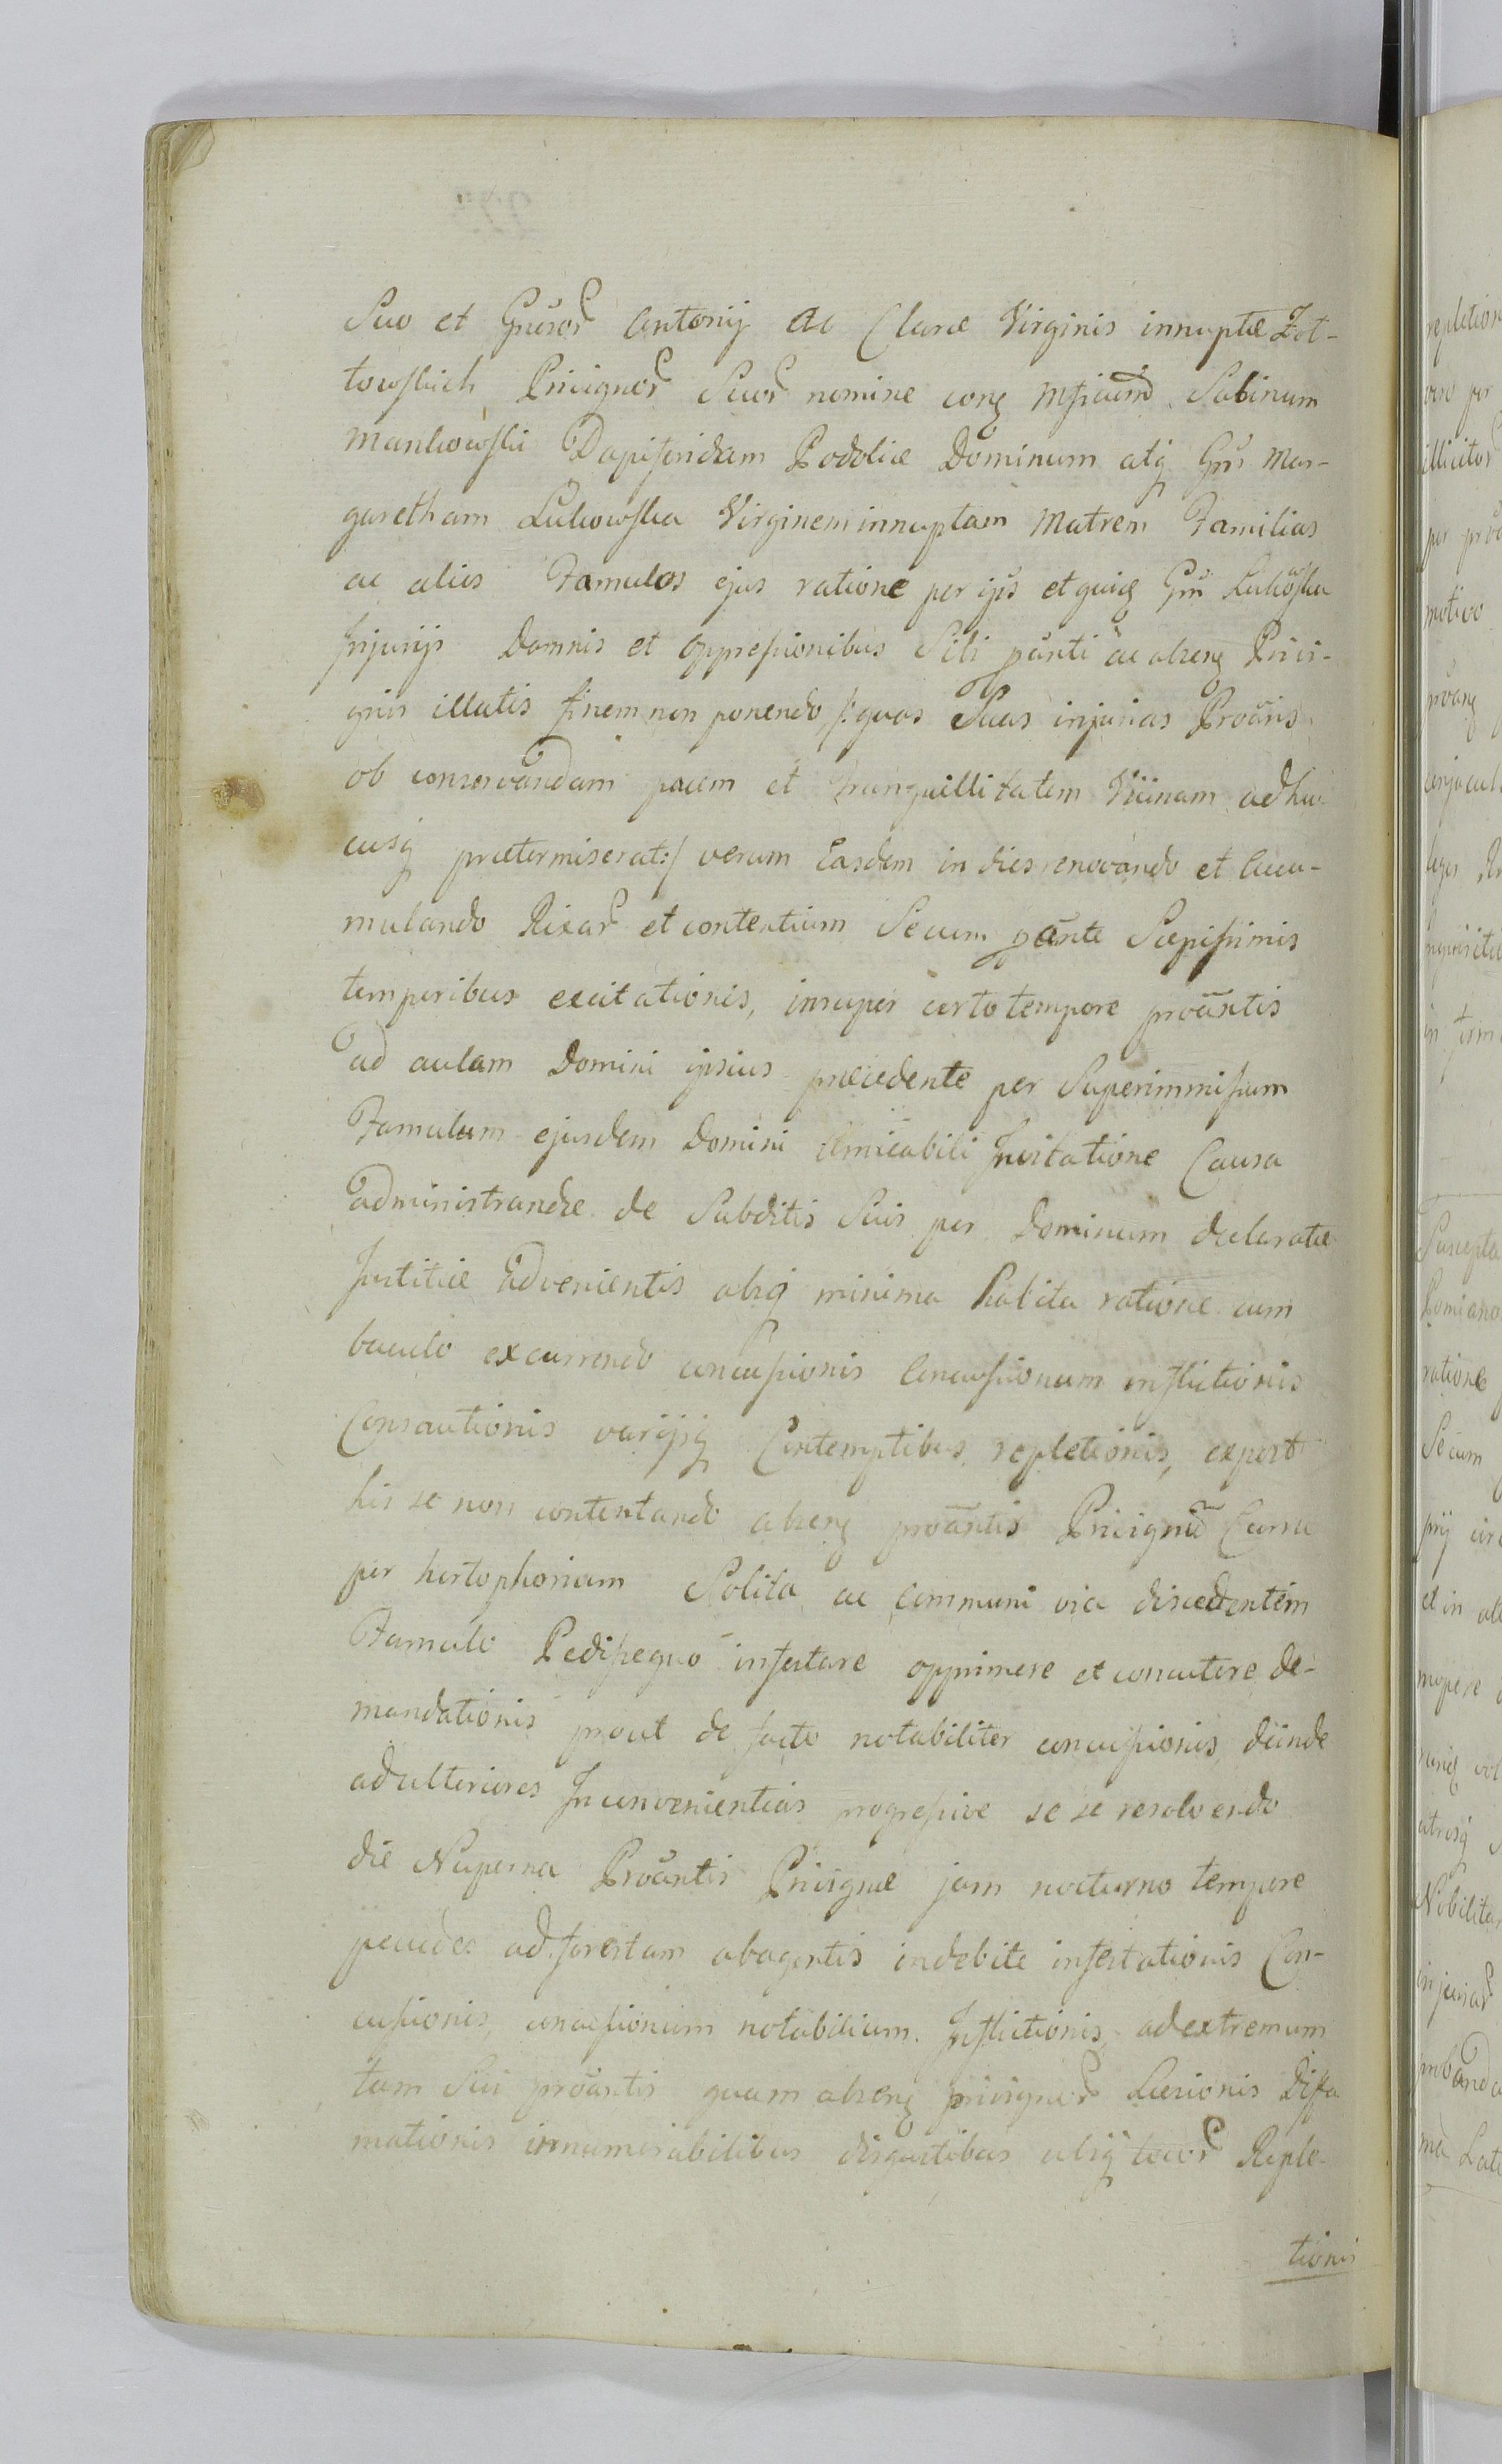 Suo et Gnsor Antonij ac Claræ Virginis innuptæ Zot-
towskich Privignor Suor nomine cong Mficum Sabinum
Mankowski Dapiferidam Podoliæ Dominum atq Gm Mar-
garetham Lukowska Virginem innuptam Matrem Familias
ac alios Famulos ejus ratione per ips et quiq Gm Lukowska
Injurijs Damnis et oppressionibus Sibi panti ac abseng Privi-
gnis illatis finem non ponendo /: quas Suas injurias Proans
ob conservandam pacem et tranquillitatem Viinam adhu-
cusq prætermiserat :/ verum Easdem in dies renovando et Cumu-
mulando Rixar et contentium Secum pante Sæpissimis
temporibus excitationis, insuper certo tempore proantis
ad aulam Domini ipsius præcedente per Superimmissum
Famulum ejusdem Domini Amicabili Invitatione Causa
administrandæ de Subditis Suis per Dominum declaratæ
Justitiæ advenientis absq minima habita ratione cum
baculo excurrendo concussionis Concussionum inflictionis
Consautionis varijsq Contemptibus repletionis, expost
his se non contentando abseng proantis Privignum Curru
per hortophoriam Solita ac communi via discedentem
Famulo Pedissequo infestare opprimere et concutere de-
mandationis prout de facto notabiliter concussionis deinde
ad ulteriores Inconvenientias progressive se se resolvendo
die Nuperna Proantis Privignæ jam nocturno tempore
pecudes ad forestam abagentis indebite infestationis Con-
cussionis, concussionum notabilium Inflictionis, ad extremum
tam Sui proantis quam abseng privignor Læsionis Diffa
mationis innumerabilibus disgustibus ubiq locor Reple-
tionis